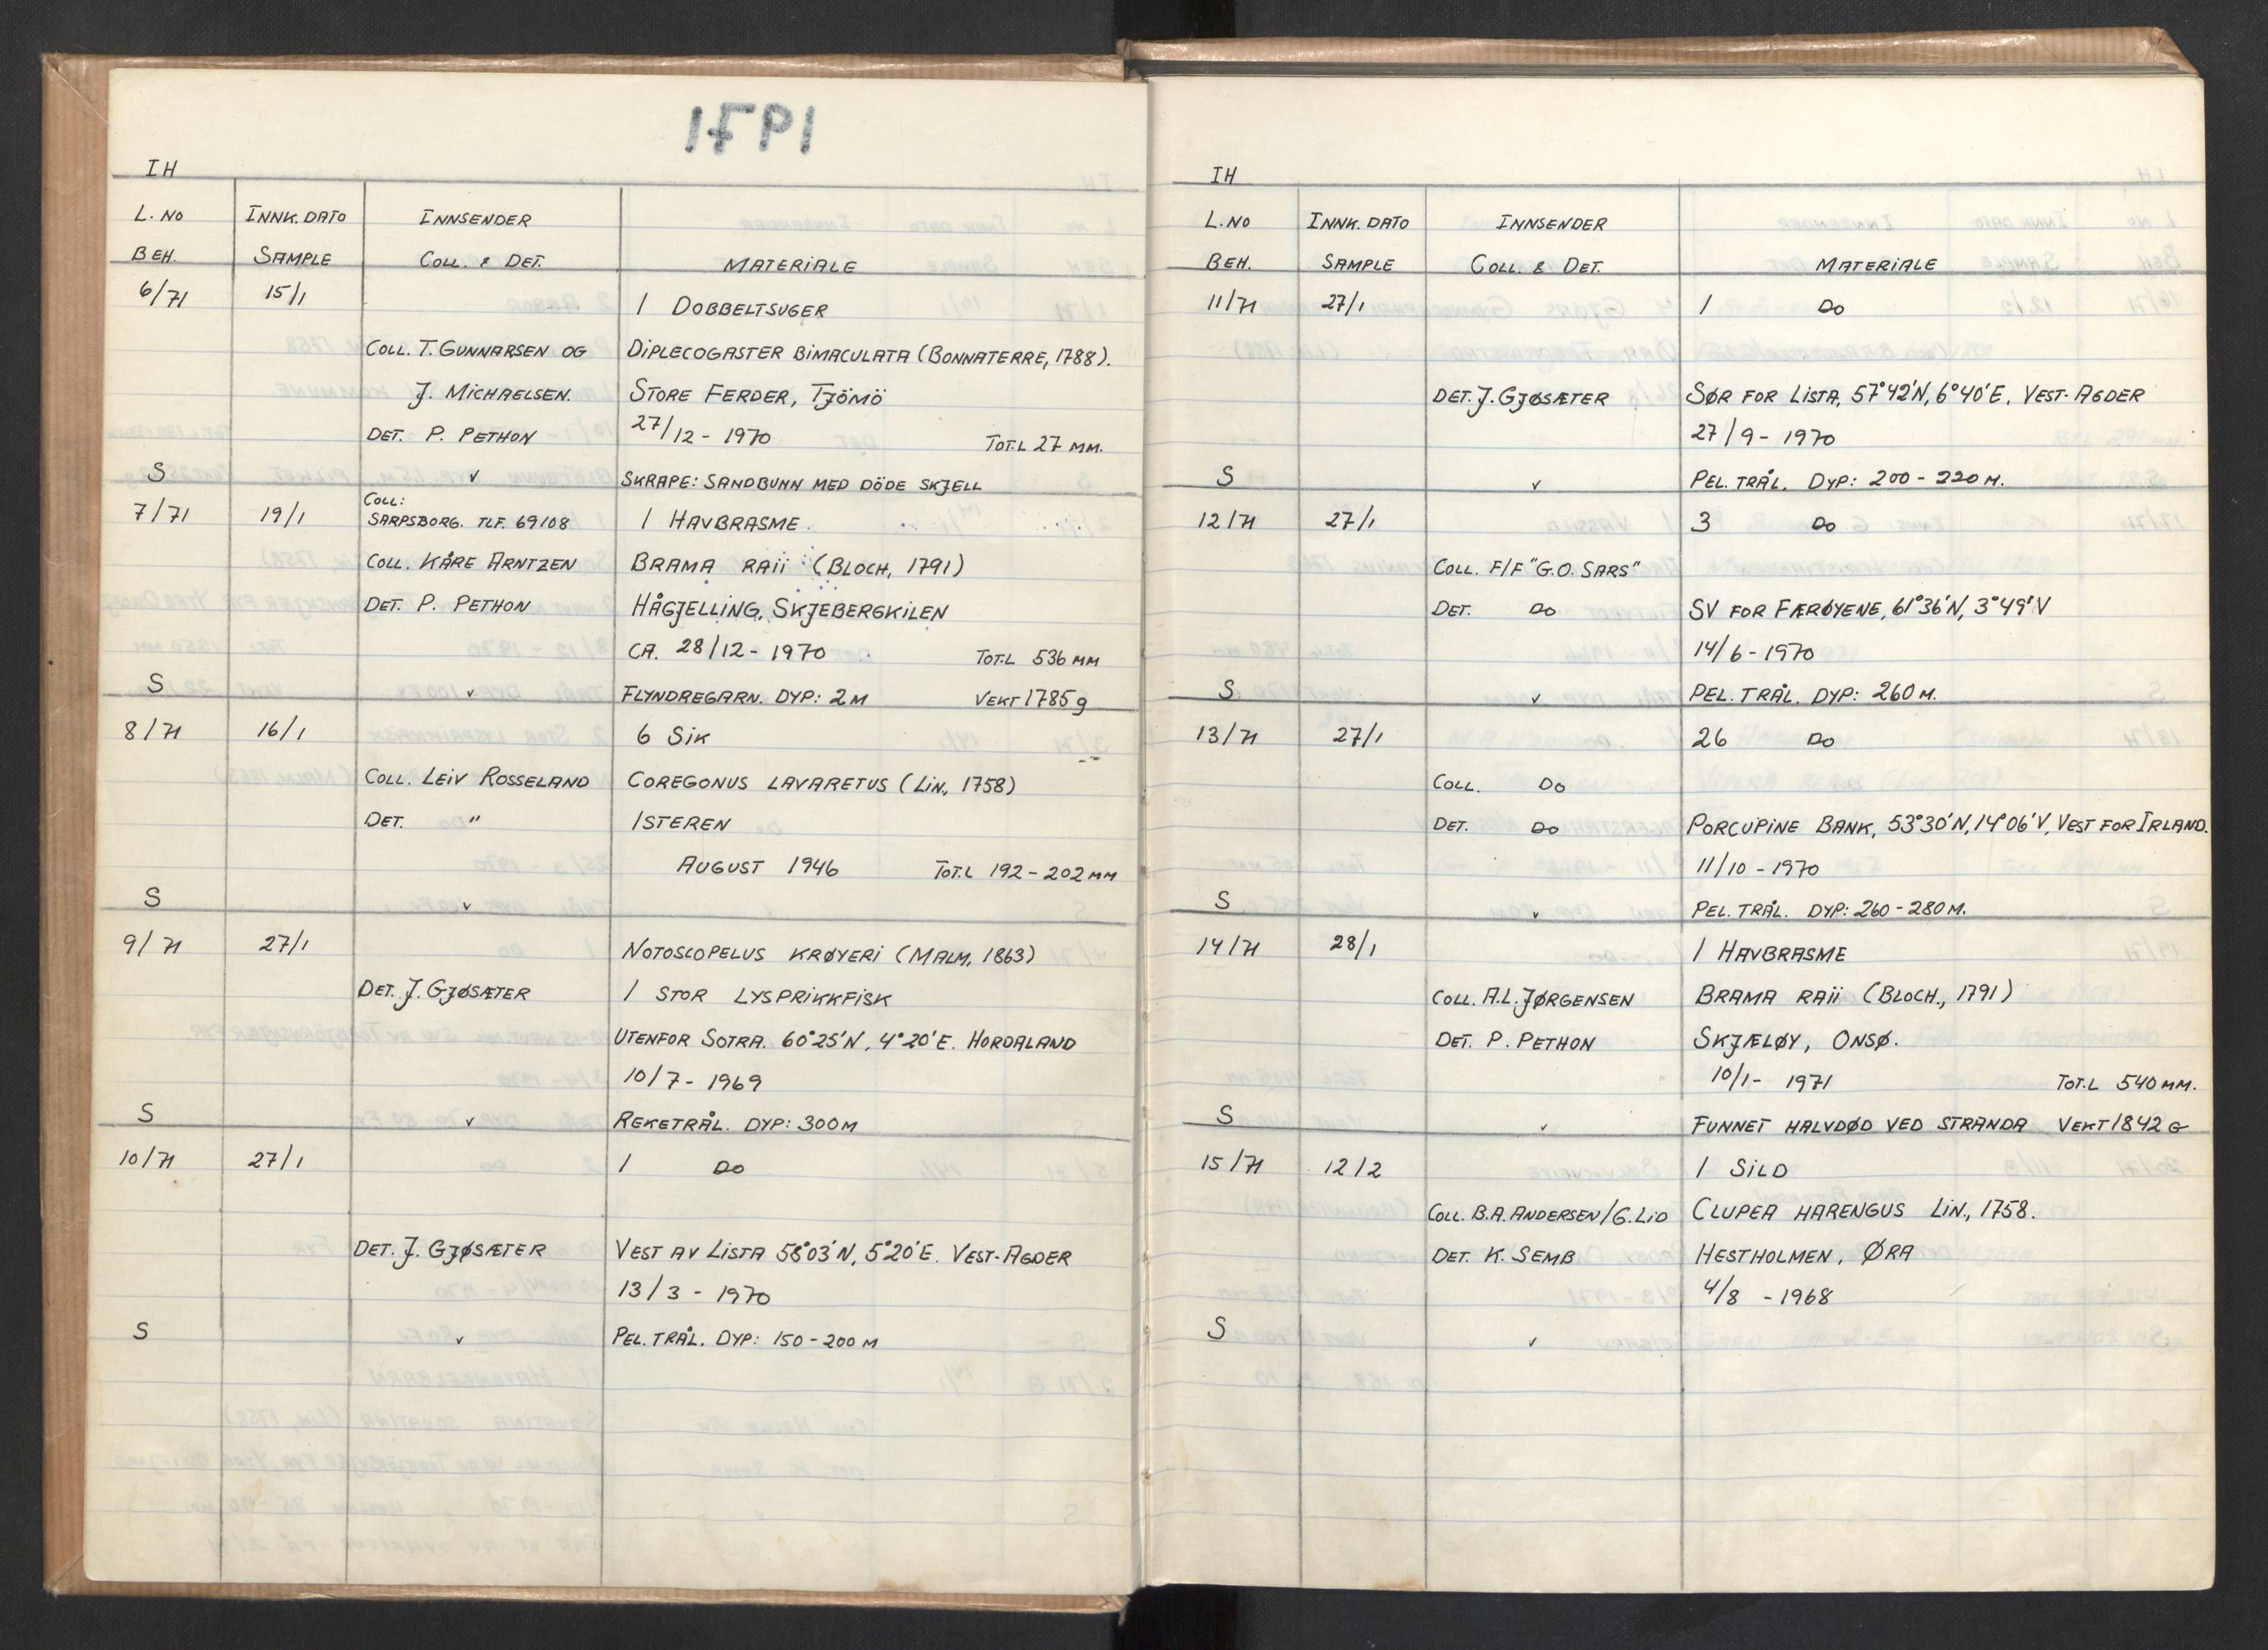 1971
IH
L. NO INNK. DATO INNSENDER
BEH. SAMPLE COLL. & DET. MATERIALE
6/71 15/1 1 DOBBELTSUGER
COLL. T. GUNNARSEN OG DIPLECOGASTER BIMACULATA (BONNATERRE, 1788).
J. MICHAELSEN. STORE FERDER, TJÖMÖ
DET. P. PETHON 27/12 - 1970 TOT.L 27 MM.
S v SKRAPE: SANDBUNN MED DÖDE SKJELL
COLL:
7/71 19/1 SARPSBORG. TLF. 69108 1 HAVBRASME
COLL. KÅRE ARNTZEN BRAMA RAII (BLOCH, 1791)
DET. P. PETHON HÅGJELLING, SKJEBERGKILEN
CA. 28/12 - 1970 TOT.L 536 MM
S v FLYNDREGARN. DYP: 2 M VEKT 1785 g
8/71 16/1 6 SIK
COLL. LEIV ROSSELAND COREGONUS LAVARETUS (LIN, 1758)
DET. " ISTEREN
AUGUST 1946 TOT.L 192 - 202 MM
S v
9/71 27/1 NOTOSLOPELUS KRØYERI (MALM, 1863)
DET. J. GJØSÆTER 1 STOR LYSPRIKKFISK
UTENFOR SOTRA. 60°25'N, 4°20'E. HORDALAND
10/7 - 1969
S v REKETRÅL. DYP: 300 M
10/71 27/1 1 DO
DET. J. GJØSÆTER VEST AV LISTA 58°03'N, 5°20'E. VEST-AGDER
13/3 - 1970
S v PEL. TRÅL. DYP: 150 - 200 M
IH
L. NO INNK. DATO INNSENDER
BEH. SAMPLE COLL. & DET. MATERIALE
11/71 27/1 1 DO
DET. J. GJØSÆTER SØR FOR LISTA, 57°42'N, 6°40'E. VEST-AGDER
27/9 - 1970
S v PEL. TRÅL. DYP: 200 - 220 M.
12/71 27/1 3 DO
COLL. F/F "G.O. SARS"
DET. DO SV FOR FÆRØYENE, 61°36'N, 3°49'V
14/6 - 1970
S v PEL. TRÅL. DYP: 260 M.
13/71 27/1 26 DO
COLL. DO
DET. DO PORCUPINE BANK, 53°30'N, 14°06'V, VEST FOR IRLAND.
11/10 - 1970
S v PEL. TRÅL. DYP: 260 - 280 M.
14/71 28/1 1 HAVBRASME
COLL. A.L. JØRGENSEN BRAMA RAII (BLOCH., 1791)
DET. P. PETHON SKJÆLØY, ONSØ.
10/1 - 1971 TOT.L 540 MM.
S v FUNNET HALVDØD VED STRANDA VEKT 1842 G
15/71 12/2 1 SILD
COLL. B.A. ANDERSEN/G. LID CLUPEA HARENGUS LIN., 1758.
DET. K. SEMB HESTHOLMEN, ØRA
4/8 - 1968
S v